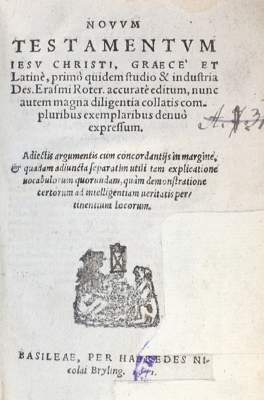 NOVVM
TESTAMENTVM
IESV CHRISTI, GRAECE' ET
Latinè, primò quidem studio & industria
Des. Erasmi Roter. accuratè editum, nunc
autem magna diligentia collatis com=
pluribus exemplaribus denuò
expressum.
Adiectis argumentis cum concordantijs in margine,
& quadam adiuncta separatim utili tam explicatione
uocabulorum quorundam, quàm demonstratione
certorum ad intelligentiam ueritatis per=
tinentium locorum.
BASILEAE, PER HAEREDES NI=
colai Bryling.